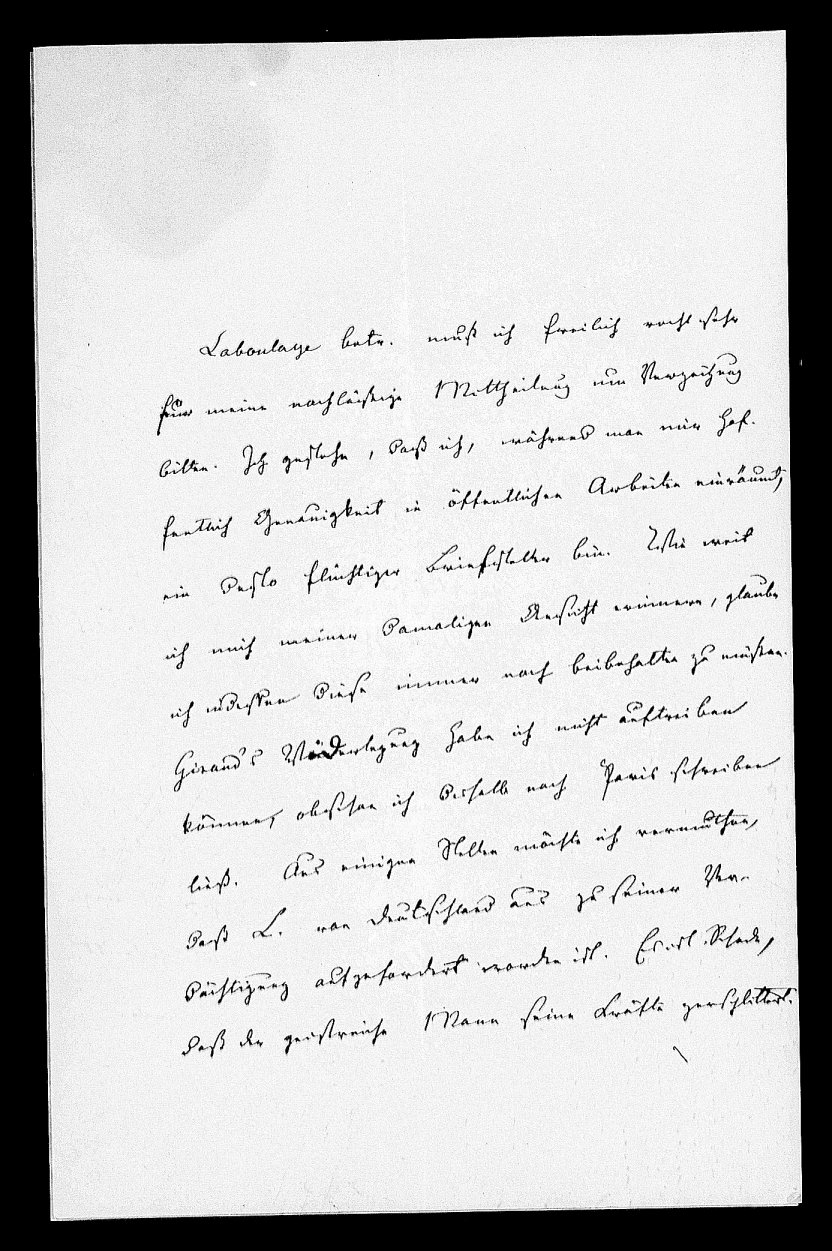 Laboulaye betr. muß ich freilich recht sehr
für meine nachläßige Mittheilung um Verzeihung
bitten. Ich gestehe, daß ich, während man mir hof-
fentlich Genauigkeit in öffentlichen Arbeiten einräumt,
ein desto flüchtiger Briefsteller bin. So weit
ich mich meiner damaligen Ansicht erinnere, glaube
ich indessen diese immer noch beibehalten zu müßen.
Giraud's Wiederlegung habe ich nicht auftreiben
können, obschon ich deshalb nach Paris schreiben
ließ. Aus einigen Stellen möchte ich vermuthen,
daß L. von Deutschland aus zu seiner Ver-
dächtigung aufgefordert worden ist. Es ist Schade,
daß der geistreiche Mann seine Kräfte zersplittert.